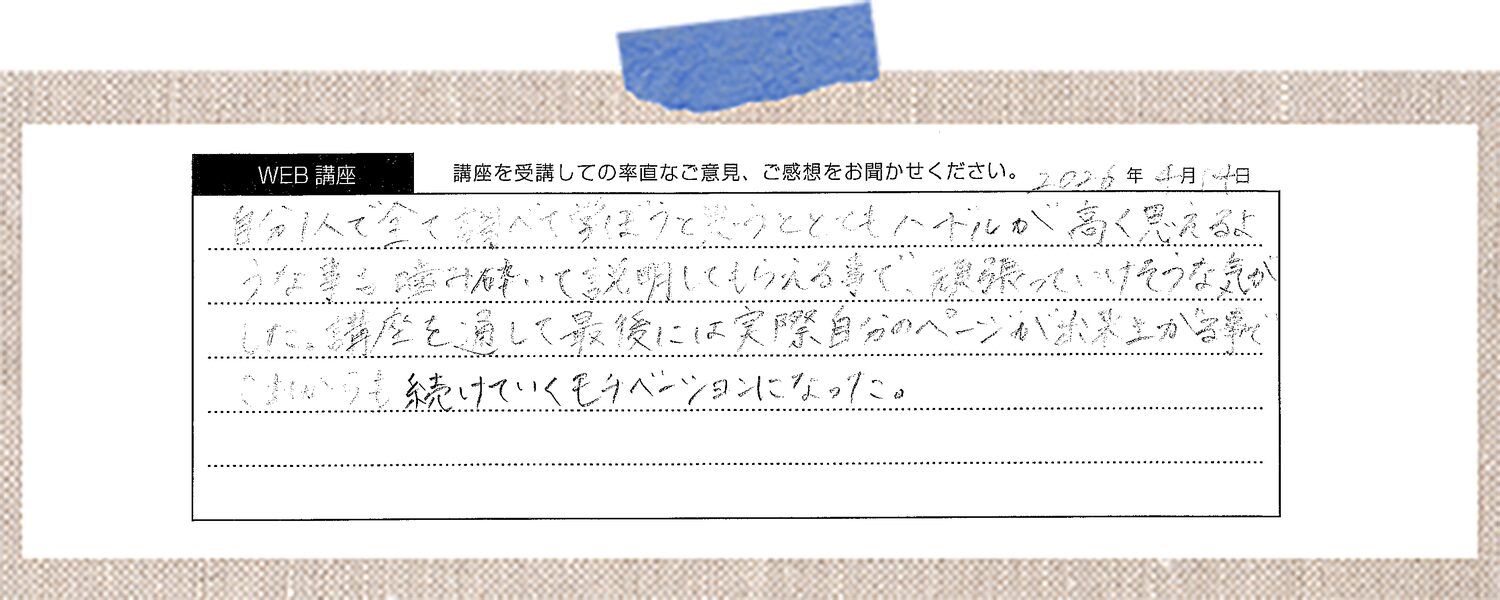 WEB 講座
講座を受講しての率直なご意見、ご感想をお聞かせください。 2026年4月14日
自分1人で全て調べて学ぼうと思うととてもハードルが高く思えるよ
うな事も噛み砕いて説明してもらえる事で、頑張っていけそうな気が
した。講座を通して最後には実際自分のページが出来上がる事で
これからも続けていくモチベーションになった。